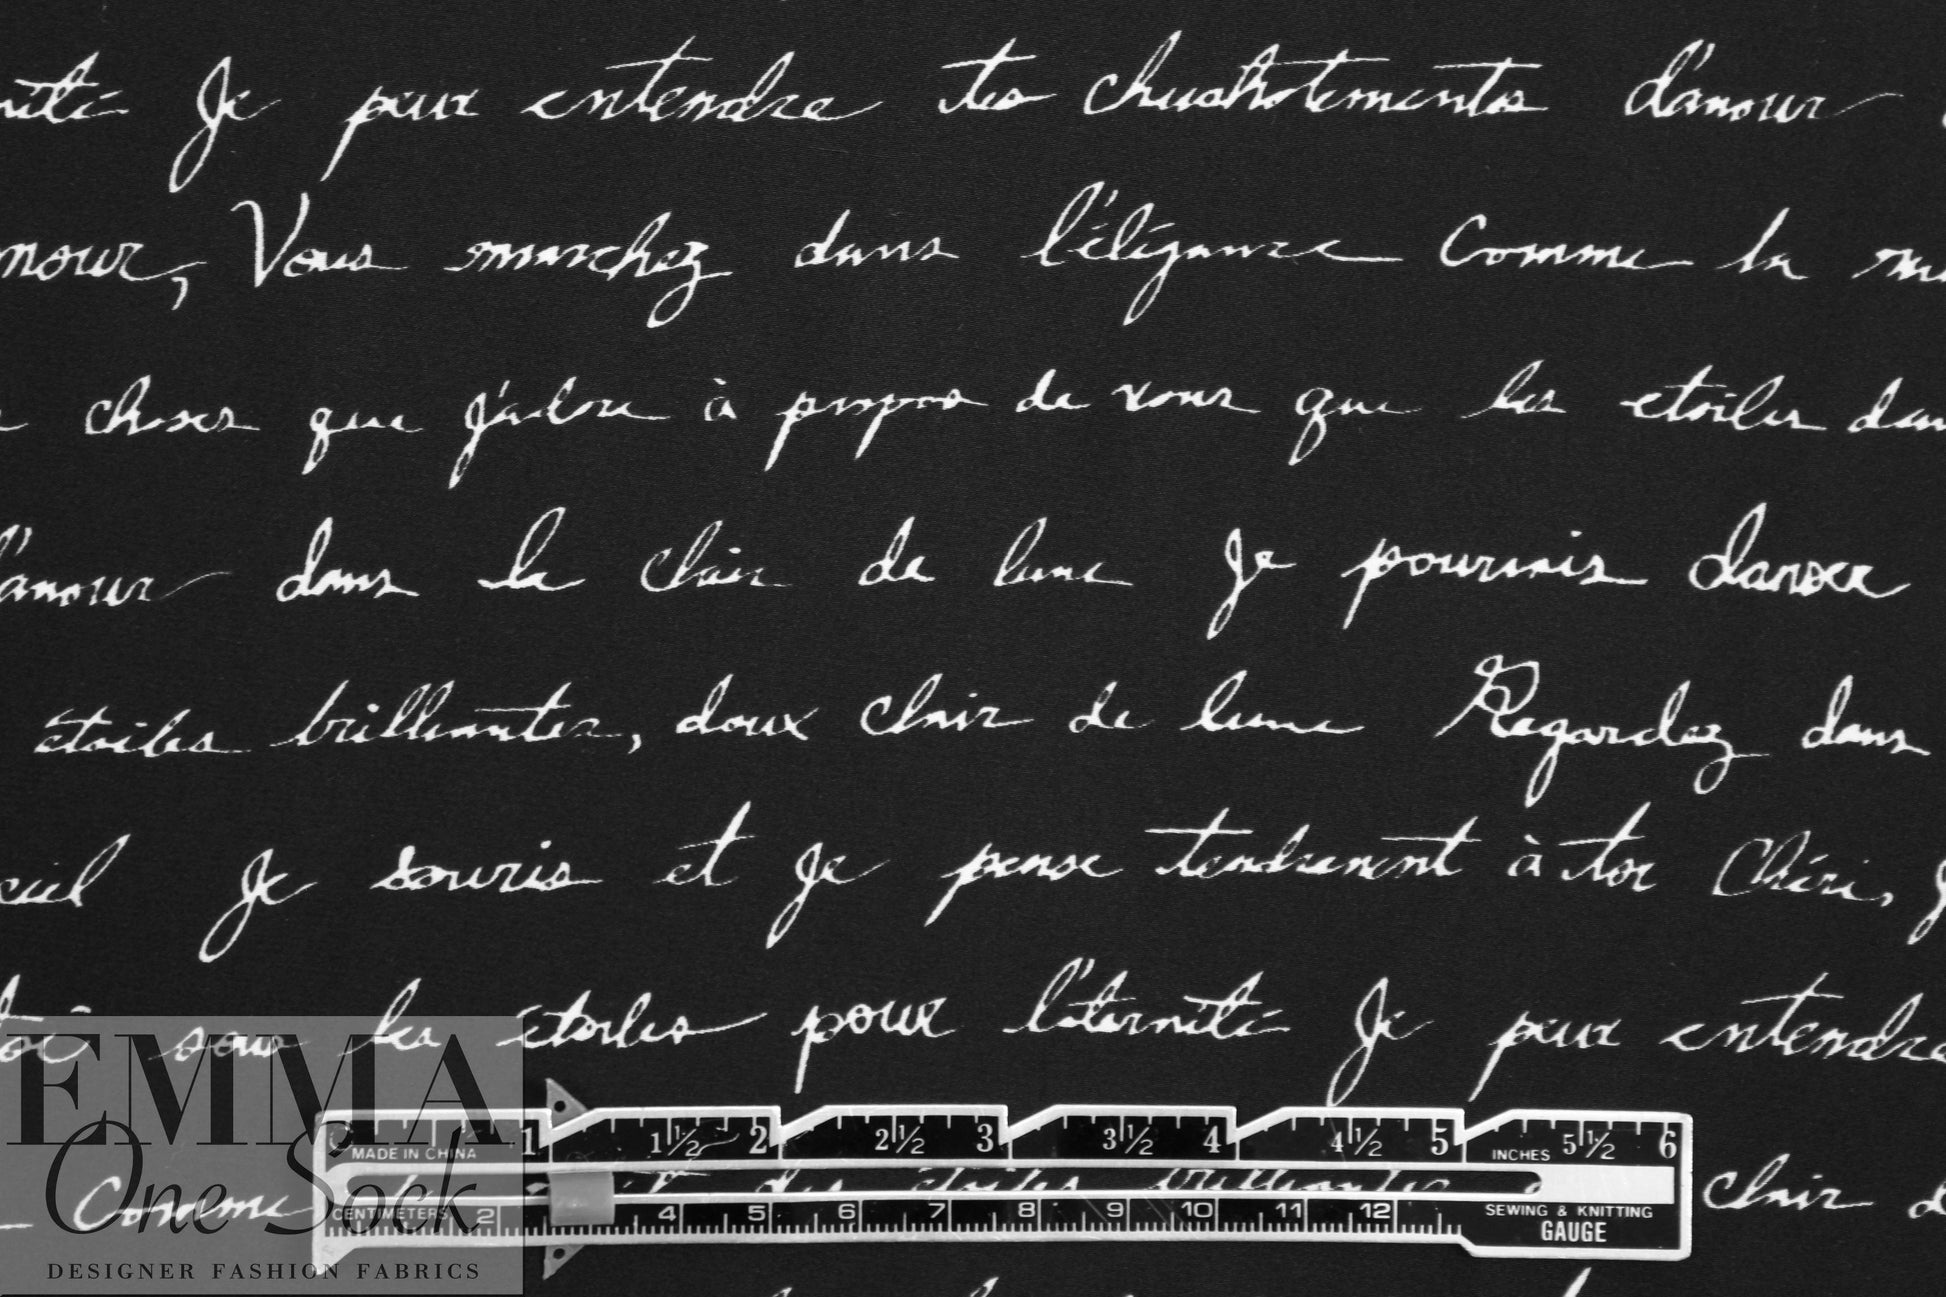 nité Je peux entendre tes chuchotements d'amour
mour, Vous marchez dans l'élégance Comme la nu
choses que j'adore à propos de vous que les etoiles dan
l'amour dans la clair de lune Je pourrais danser
étoiles brillantes, doux clair de lune Regardez dans
ciel Je souris et je pense tendrement à toi Chéri, J
toi sous les étoiles pour l'éternité Je peux entendre
Comme des étoiles brillantes clair d
1 1½ 2 2½ 3 3½ 4 4½ 5 5½ 6
MADE IN CHINA INCHES
CENTIMETERS 2 4 5 6 7 8 9 10 11 12
SEWING & KNITTING
GAUGE
EMMA
One Sock
DESIGNER FASHION FABRICS